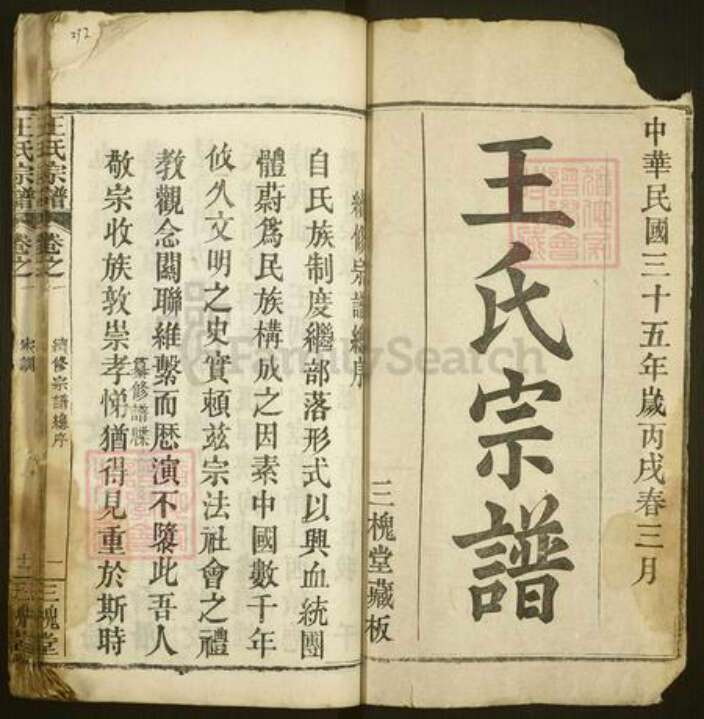 中華民國三十五年歲丙戌春三月
王氏宗譜
三槐堂藏板
續修宗譜總序
自氏族制度繼部落形式以興血統團
體蔚為民族構成之因素中國數千年
攸久文明之史實賴茲宗法社會之禮
教觀念關聯維繫而歷演不墜此吾人
纂修譜牒
敬宗收族敦崇孝悌猶得見重於斯時
王氏宗譜
卷之一
續修宗譜總序
一
三槐堂
王氏宗譜
卷之一
家訓
十二
292
FamilySearch